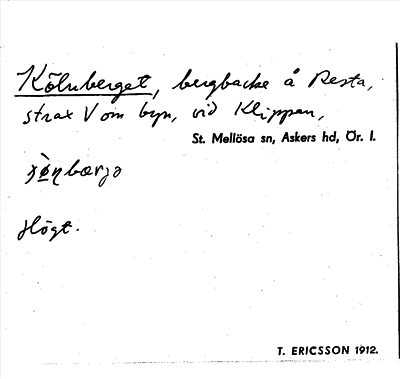 Kölnberget, bergbacke å Resta,
strax V om byn, vid Klippan,
St. Mellösa sn, Askers hd, Ör. l.
Högt.
T. ERICSSON 1912.